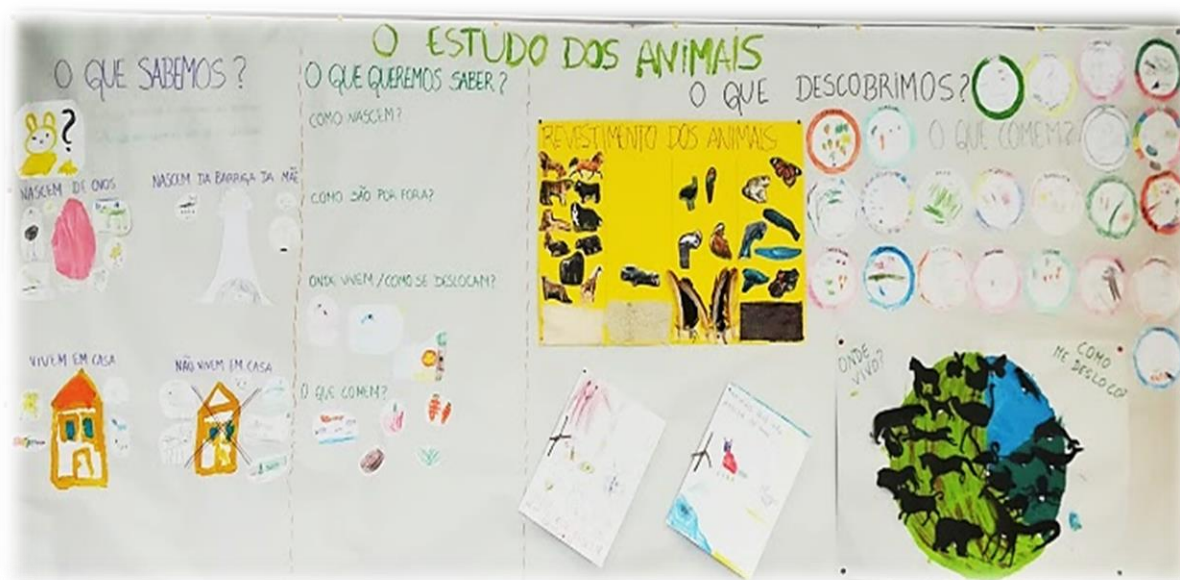 O ESTUDO DOS ANIMAIS
O QUE SABEMOS?
?
NASCEM DE OVOS
NASCEM DA BARRIGA DA MÃE
VIVEM EM CASA
NÃO VIVEM EM CASA
O QUE QUEREMOS SABER?
COMO NASCEM?
COMO SÃO POR FORA?
ONDE VIVEM/COMO SE DESLOCAM?
O QUE COMEM?
O QUE DESCOBRIMOS?
REVESTIMENTO DOS ANIMAIS
O QUE COMEM?
ONDE
VIVO?
COMO
ME DESLOCO?